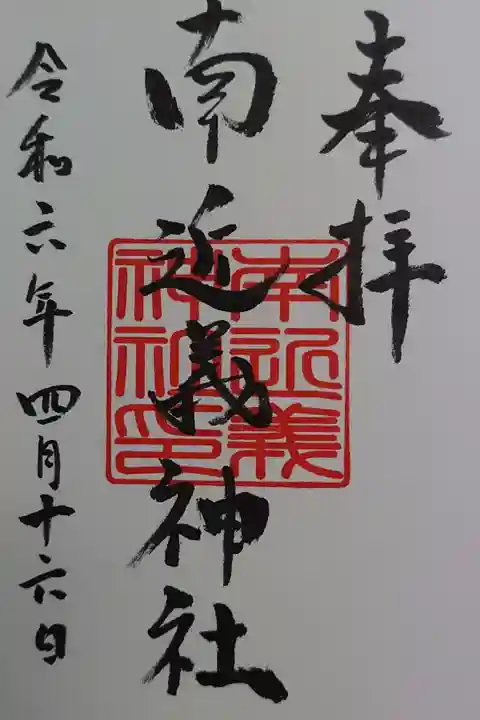 奉拝
南近義神社
南近義
神社印
令和六年四月十六日